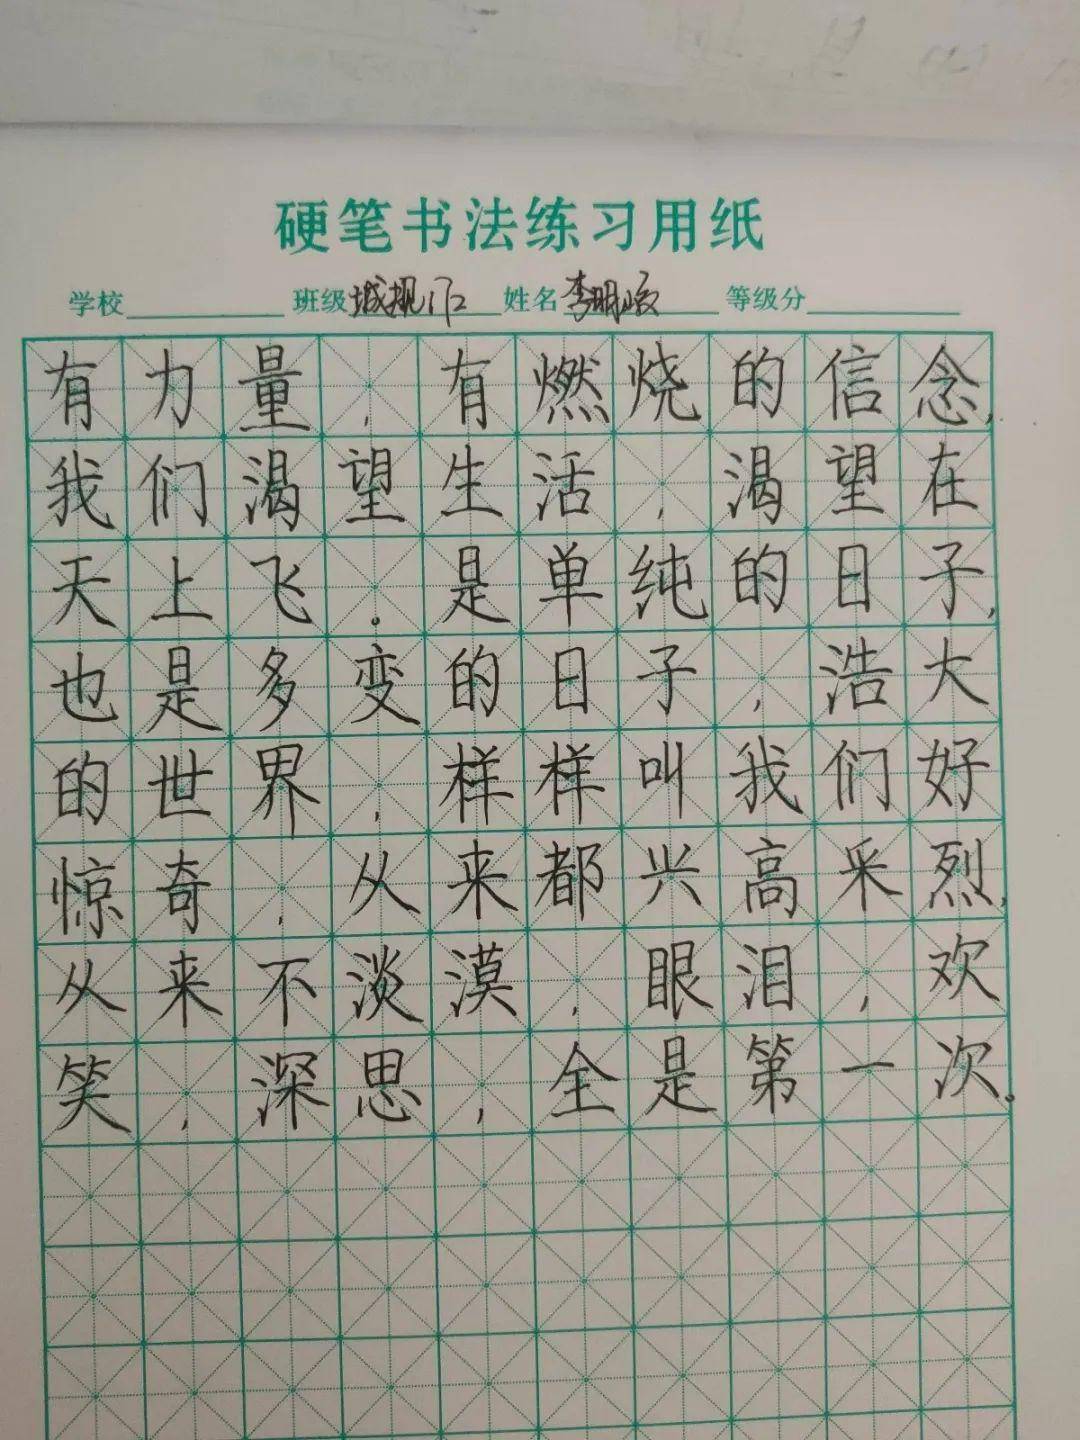 硬笔书法练习用纸
学校 班级 城规172 姓名 李明峻 等级分
有力量，有燃烧的信念，
我们渴望生活，渴望在
天上飞．是单纯的日子，
也是多变的日子，浩大
的世界，样样叫我们好
惊奇，从来都兴高采烈，
从来不淡漠，眼泪，欢
笑，深思，全是第一次．